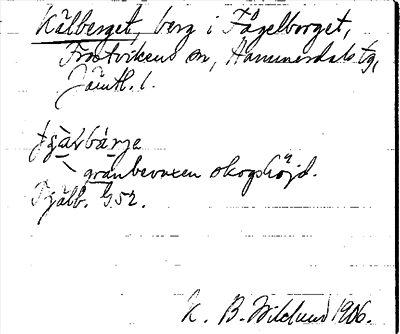 Kälberget, berg i Fågelberget,
Frostvikens sn, Hammerdals tg,
Jämtl. l.
granbevuxen skogshöjd.
K. B. Wiklund 1906.